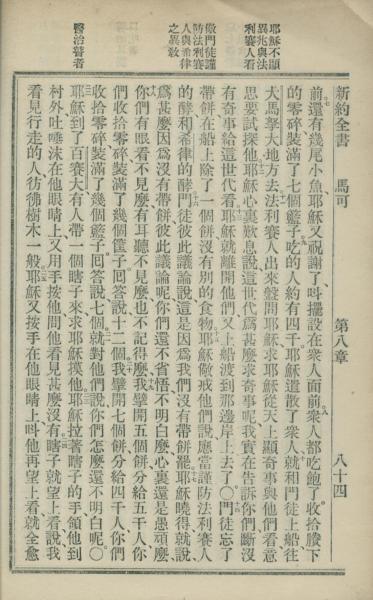 新約全書　馬可　第八章　八十四
耶穌不顯
異兆與法
利賽人看
儆門徒謹
防法利賽
人與希律
之異教
醫治瞽者
前還有幾尾小魚耶穌又祝謝了呌擺設在衆人面前衆人都吃飽了收拾賸下
的零碎裝滿了七個籃子吃的人約有四千耶穌遣散了衆人就和門徒上船往
大馬拏大地方去法利賽人出來盤問耶穌求耶穌從天上顯奇事與他們看意
思要試探他耶穌心裏歎息說這世代爲甚麽求奇事呢我實在告訴你們斷沒
有奇事給這世代看耶穌就離開他們又上船渡到那邊岸上去了〇門徒忘了
帶餅在船上除了一個餅沒有別的食物耶穌儆戒他們說應當謹防法利賽人
的酵和希律的酵門徒彼此議論說這是因爲我們沒有帶餅罷耶穌曉得就說
爲甚麽因爲沒有帶餅彼此議論呢你們還不省悟不明白麽心裏還是愚頑麽
你們有眼看不見麽有耳聽不見麽也不記得麽我擘開五個餅分給五千人你
們收拾零碎裝滿了幾個筐子囘答說十二個我擘開七個餅分給四千人你們
收拾零碎裝滿了幾個籃子囘答說七個就對他們說你們怎麽還不明白呢〇
耶穌到了百賽大有人帶一個瞎子來求耶穌摸他耶穌拉著瞎子的手領他到
村外吐唾沫在他眼睛上又用手按他問他看見甚麽沒有瞎子就望上看說我
看見行走的人彷彿樹木一般耶穌又按手在他眼睛上呌他再望上看就全愈